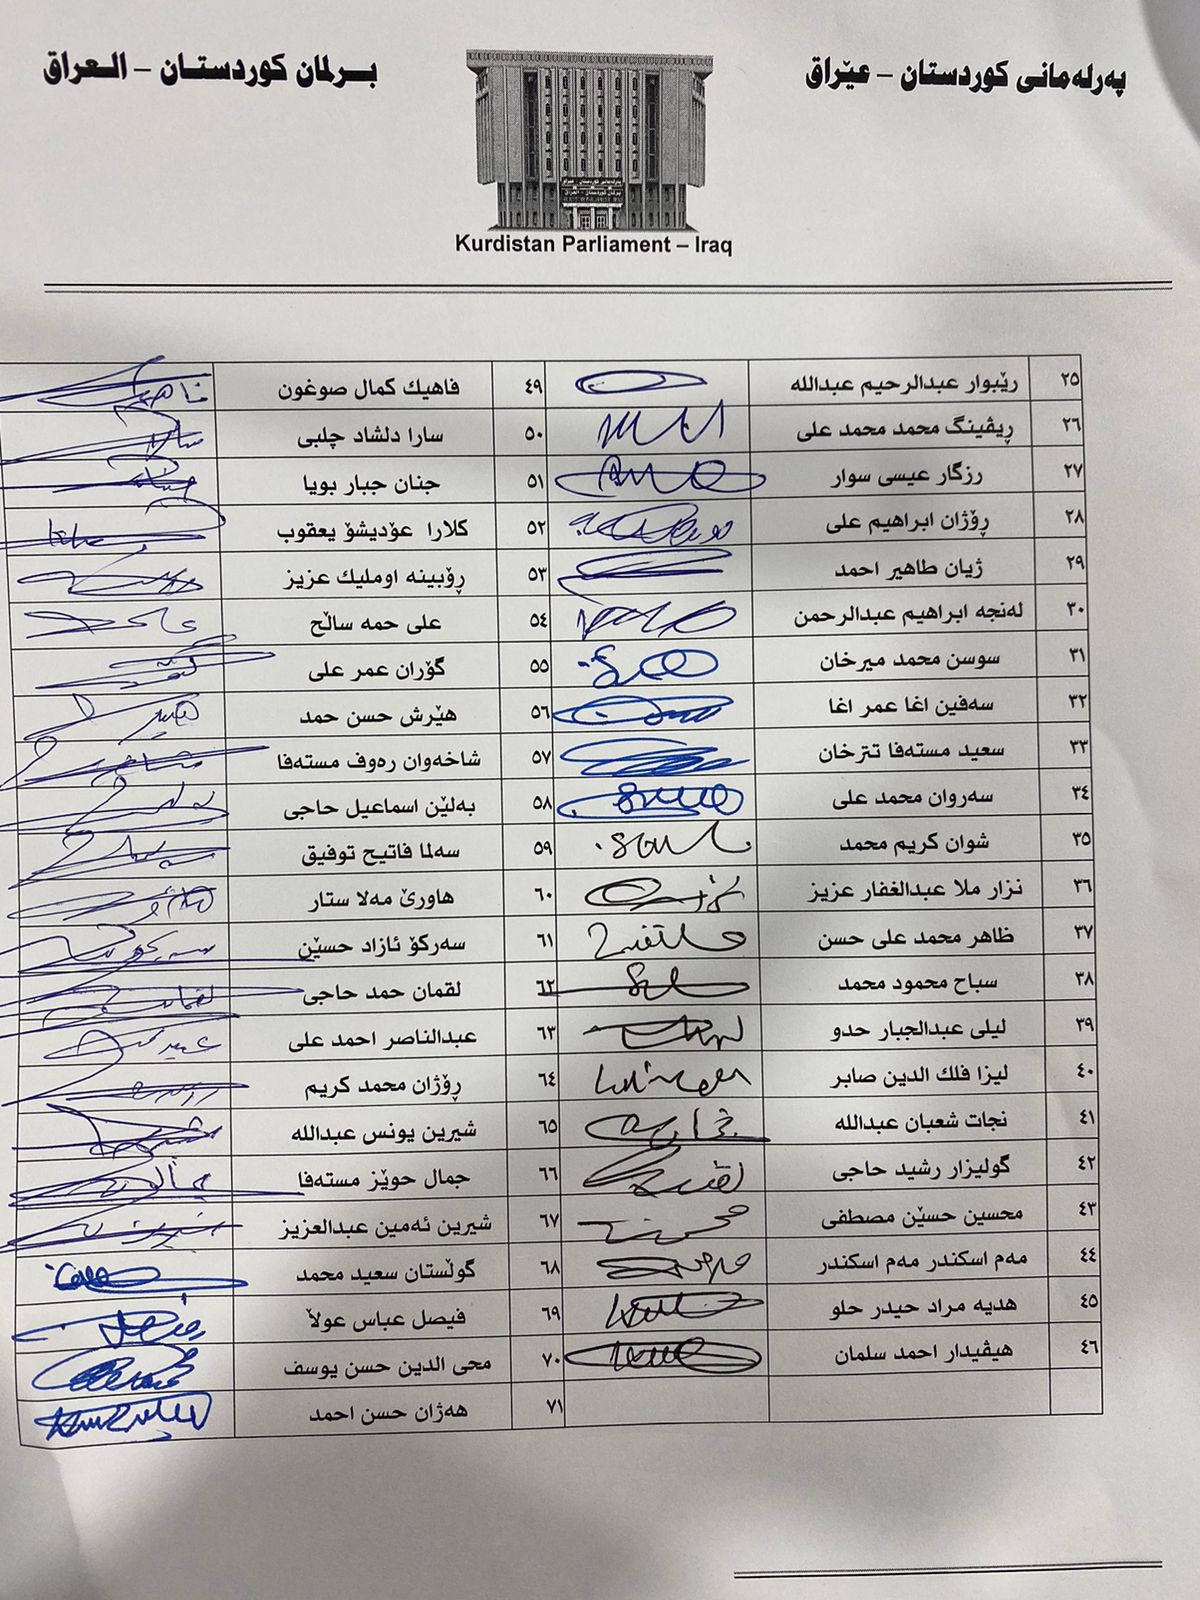 پەرلەمانی کوردستان – عێراق
برلمان كوردستان – العراق
Kurdistan Parliament – Iraq
٢٥ رێبوار عبدالرحیم عبدالله
٤٩ فاهیك كمال صوغون
٢٦ ڕیڤینگ محمد محمد علی
٥٠ سارا دلشاد چلبی
٢٧ رزگار عیسی سوار
٥١ جنان جبار بویا
٢٨ ڕۆژان ابراهیم علی
٥٢ كلارا عۆدیشۆ یعقوب
٢٩ ژیان طاهیر احمد
٥٣ ڕۆبینه اوملیك عزیز
٣٠ لەنجه ابراهیم عبدالرحمن
٥٤ علی حمه ساڵح
٣١ سوسن محمد میرخان
٥٥ گۆران عمر علی
٣٢ سەفین اغا عمر اغا
٥٦ هێرش حسن حمد
٣٣ سعید مستەفا تترخان
٥٧ شاخەوان رەوف مستەفا
٣٤ سەروان محمد علی
٥٨ بەڵێن اسماعیل حاجی
٣٥ شوان كریم محمد
٥٩ سەلما فاتیح توفیق
٣٦ نزار ملا عبدالغفار عزیز
٦٠ هاورێ مەلا ستار
٣٧ ظاهر محمد علی حسن
٦١ سەركۆ ئازاد حسێن
٣٨ سباح محمود محمد
٦٢ لقمان حمد حاجی
٣٩ لیلی عبدالجبار حدو
٦٣ عبدالناصر احمد علی
٤٠ لیزا فلك الدین صابر
٦٤ ڕۆژان محمد كریم
٤١ نجات شعبان عبدالله
٦٥ شیرین یونس عبدالله
٤٢ گولیزار رشید حاجی
٦٦ جمال حوێز مستەفا
٤٣ محسین حسێن مصطفی
٦٧ شیرین ئەمین عبدالعزیز
٤٤ مەم اسكندر مەم اسكندر
٦٨ گوڵستان سعید محمد
٤٥ هدیه مراد حیدر حلو
٦٩ فیصل عباس عولاَ
٤٦ هیڤیدار احمد سلمان
٧٠ محی الدین حسن یوسف
٧١ هەژان حسن احمد